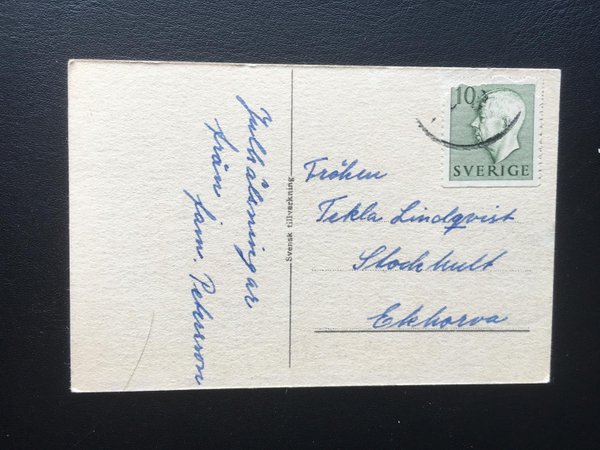 Julhälsningar
från
fam. Petersson
Svensk tillverkning
10
SVERIGE
Fröken
Tekla Lindqvist
Stockhult
Ekhorva